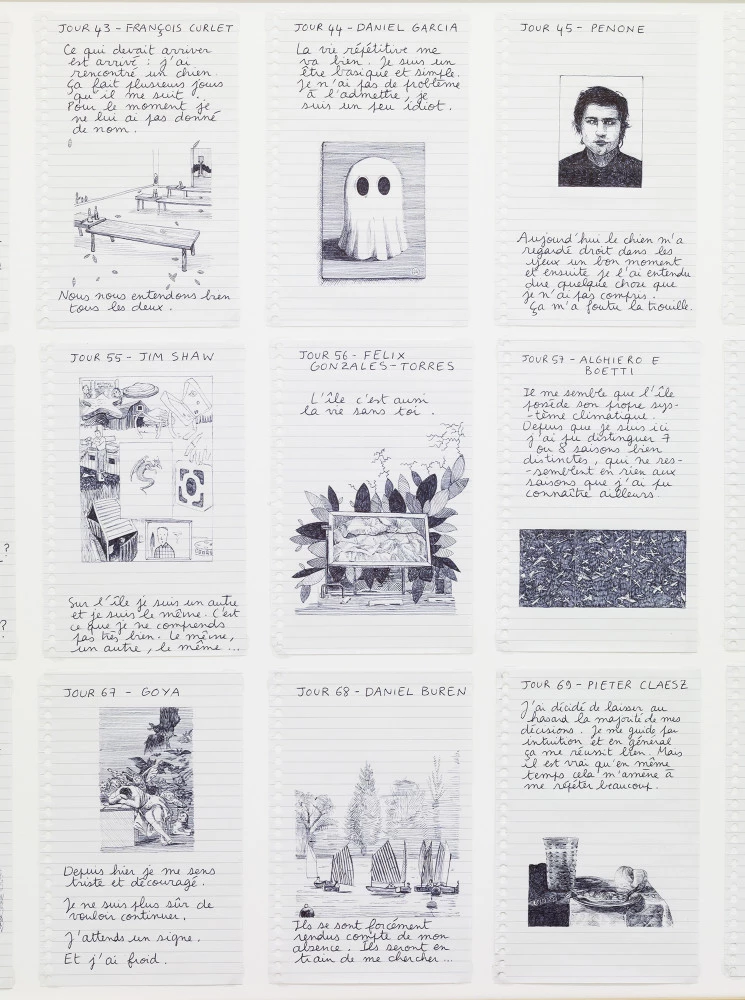 JOUR 43 - FRANÇOIS CURLET
Ce qui devait arriver
est arrivé : j'ai
rencontré un chien.
Ça fait plusieurs jours
qu'il me suit.
Pour le moment je
ne lui ai pas donné
de nom.
Nous nous entendons bien
tous les deux.
JOUR 44 - DANIEL GARCIA
La vie répétitive me
va bien. Je suis un
être basique et simple.
Je n'ai pas de problème
à l'admettre, je
suis un peu idiot.
JOUR 45 - PENONE
Aujourd'hui le chien m'a
regardé droit dans les
yeux un bon moment
et ensuite je l'ai entendu
dire quelque chose que
je n'ai pas compris.
Ça m'a foutu la trouille.
JOUR 55 - JIM SHAW
Sur l'île je suis un autre
et je suis le même. C'est
ce que je ne comprends
pas très bien. Le même,
un autre, le même ...
JOUR 56 - FELIX
GONZALES-TORRES
L'île c'est aussi
la vie sans toi.
JOUR 57 - ALGHIERO E
BOETTI
Il me semble que l'île
possède son propre sys-
-tème climatique.
Depuis que je suis ici
j'ai pu distinguer 7
ou 8 saisons bien
distinctes, qui ne res-
-semblent en rien aux
saisons que j'ai pu
connaître ailleurs.
?
?
JOUR 67 - GOYA
Depuis hier je me sens
triste et découragé.
Je ne suis plus sûr de
vouloir continuer.
J'attends un signe.
Et j'ai froid.
JOUR 68 - DANIEL BUREN
Ils se sont forcément
rendus compte de mon
absence. Ils seront en
train de me chercher ...
JOUR 69 - PIETER CLAESZ
J'ai décidé de laisser au
hasard la majorité de mes
décisions. Je me guide par
intuition et en général
ça me réussit bien. Mais
il est vrai qu'en même
temps cela m'amène à
me répéter beaucoup.